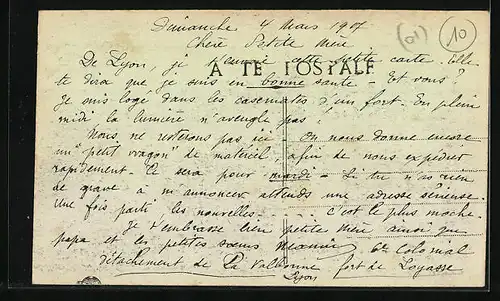 Dimanche 4 Mars 1917
(01)
(10)
Chère Petite Mère
CARTE POSTALE
De Lyon, je t'envoie cette petite carte. Elle
te dira que je suis en bonne santé - Et vous?
Je suis logé dans les casemates d'un fort. En plein
midi la lumière n'aveugle pas!
Nous ne resterons pas ici. On nous donne encore
un "petit wagon" de matériel, afin de nous expédier
rapidement. Ce sera pour mardi - Si tu n'as rien
de grave à m'annoncer attends une adresse sérieuse.
Une fois parti les nouvelles c'est le plus moche.
Je t'embrasse bien petite mère ainsi que
papa et les petites sœurs Bn Colonial
détachement de La Valbonne fort de Loyasse
Lyon